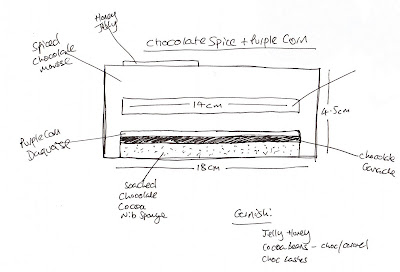 Honey
Jelly
Chocolate Spice + Purple Corn
Spiced
Chocolate
Mousse
14cm
4.5cm
Purple Corn
Daquoise
Chocolate
Ganache
18cm
Soaked
Chocolate
Cocoa
Nib Sponge
Garnish:
Jelly Honey
Cocoa Beans - choc/caramel
Choc Tastes